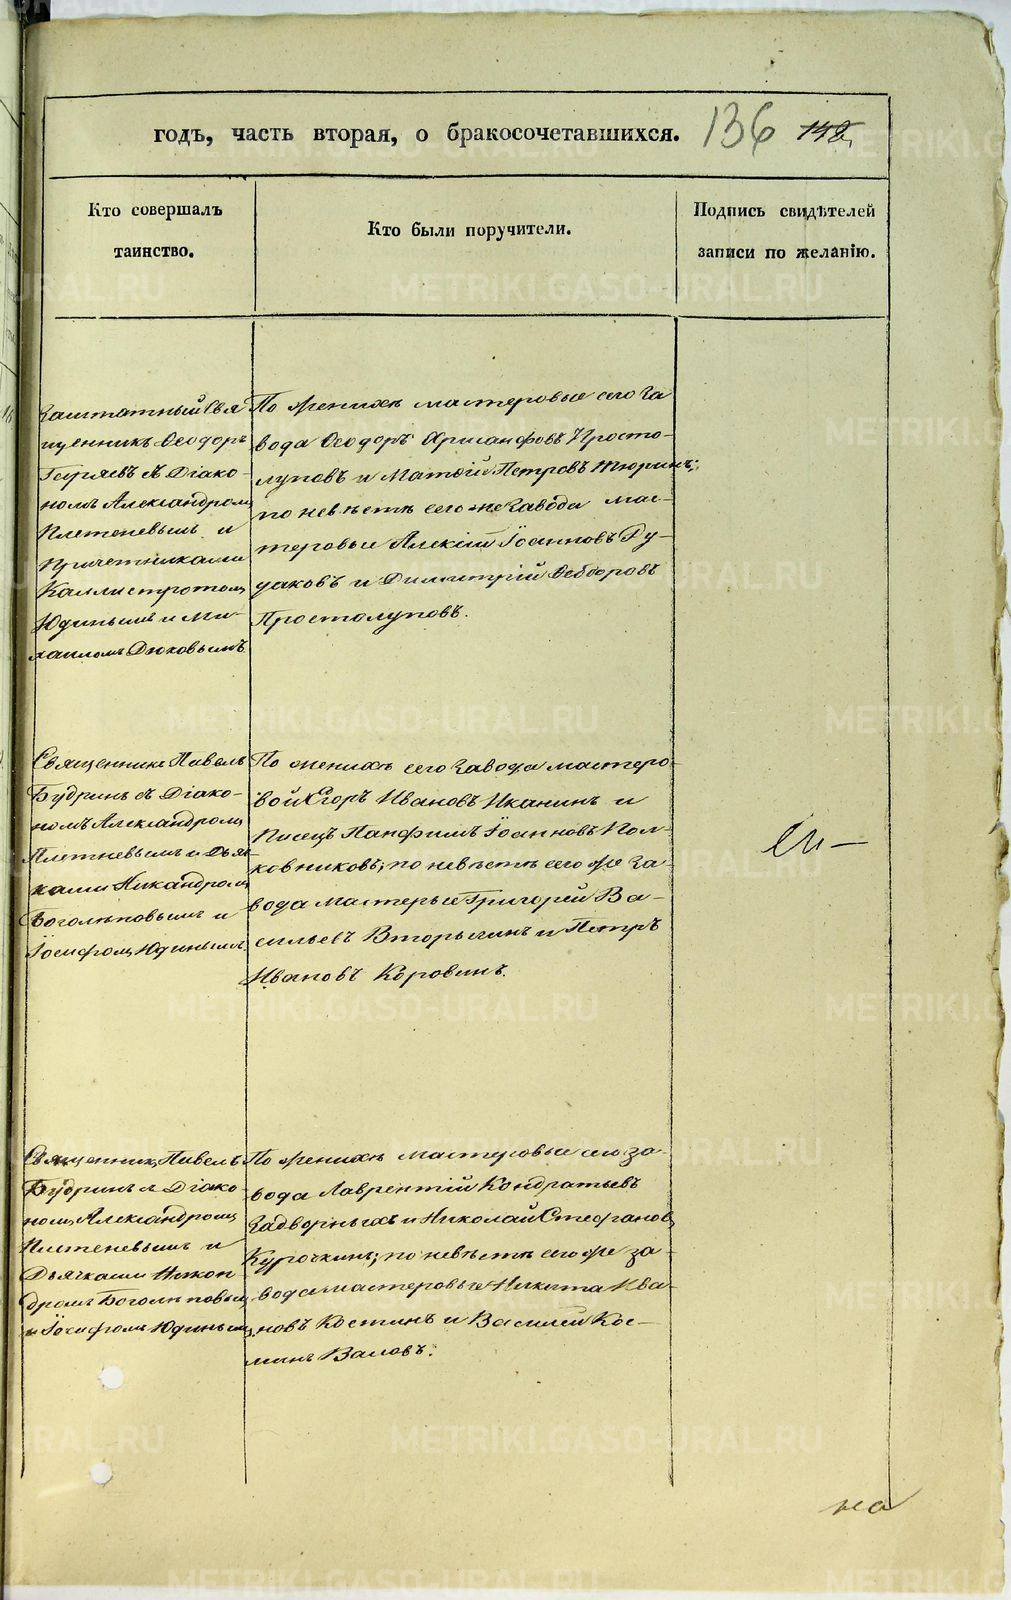 годъ, часть вторая, о бракосочетавшихся. 136 142
Кто совершалъ
таинство.
Кто были поручители.
Подпись свидѣтелей
записи по желанію.
Заштатный Свя
щенникъ Ѳеодоръ
съ Діако-
номъ Александромъ
Плетеневымъ и
причетниками
Каллистротомъ
Юдинымъ и Ми-
хаиломъ Дюковымъ
По женихѣ мастеровые сего за
вода Ѳеодоръ Хрисанфовъ Просто-
луповъ и Матѳій Петровъ Тюринъ;
по невѣстѣ сего же завода мас-
теровые Алексій Іоанновъ Ру-
даковъ и Димитрій Ѳеодоровъ
Простолуповъ.
Священникъ Павелъ
Будринъ съ Діако-
номъ Александромъ
Плетневымъ и Дьяч
ками Никандромъ
Боголѣповымъ и
Іосифомъ Юдинымъ
По женихѣ сего завода мастеро-
вой Егоръ Ивановъ Иканинъ и
Писецъ Панфилъ Іоанновъ Пол-
ковниковъ; по невѣстѣ сего же за-
вода мастерые Григорей Ва-
сильевъ Вторыхинъ и Петръ
Ивановъ Коровинъ.
Священникъ Павелъ
Будринъ съ Діако-
номъ Александромъ
Плетеневымъ и
Дьячками Никон
дромъ Боголѣповым
и Іосифомъ Юдинымъ
По женихѣ мастеровые сего за-
вода Лаврентій Кондратьевъ
Задворныхъ и Николай Стефановъ
Курочкинъ; по невѣстѣ сего же за-
вода мастеровые Никита Ива-
новъ Костинъ и Василей Кос-
минъ Валовъ.
на
METRIKI.GASO-URAL.RU